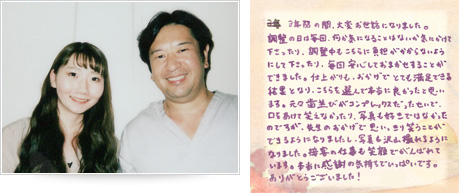 2年間の間、大変お世話になりました。
調整の日は毎回、何か気になることはないか気にかけて
下さったり、調整中もこちらに負担がかからないよう
にして下さったり、毎回安心しておまかせすることが
できました。仕上がりも、おかげでとても満足できる
結果となり、こちらを選んで本当に良かったと思い
ます。元々歯並びがコンプレックスだったせいで、
口をあけて笑えなかったり、写真も好きではなかった
のですが、先生のおかげで思いっきり笑うことが
できるようになりましたし、写真も沢山撮れるように
なりました。接客の仕事も笑顔でがんばれて
います。本当に感謝の気持ちでいっぱいです。
ありがとうございました！